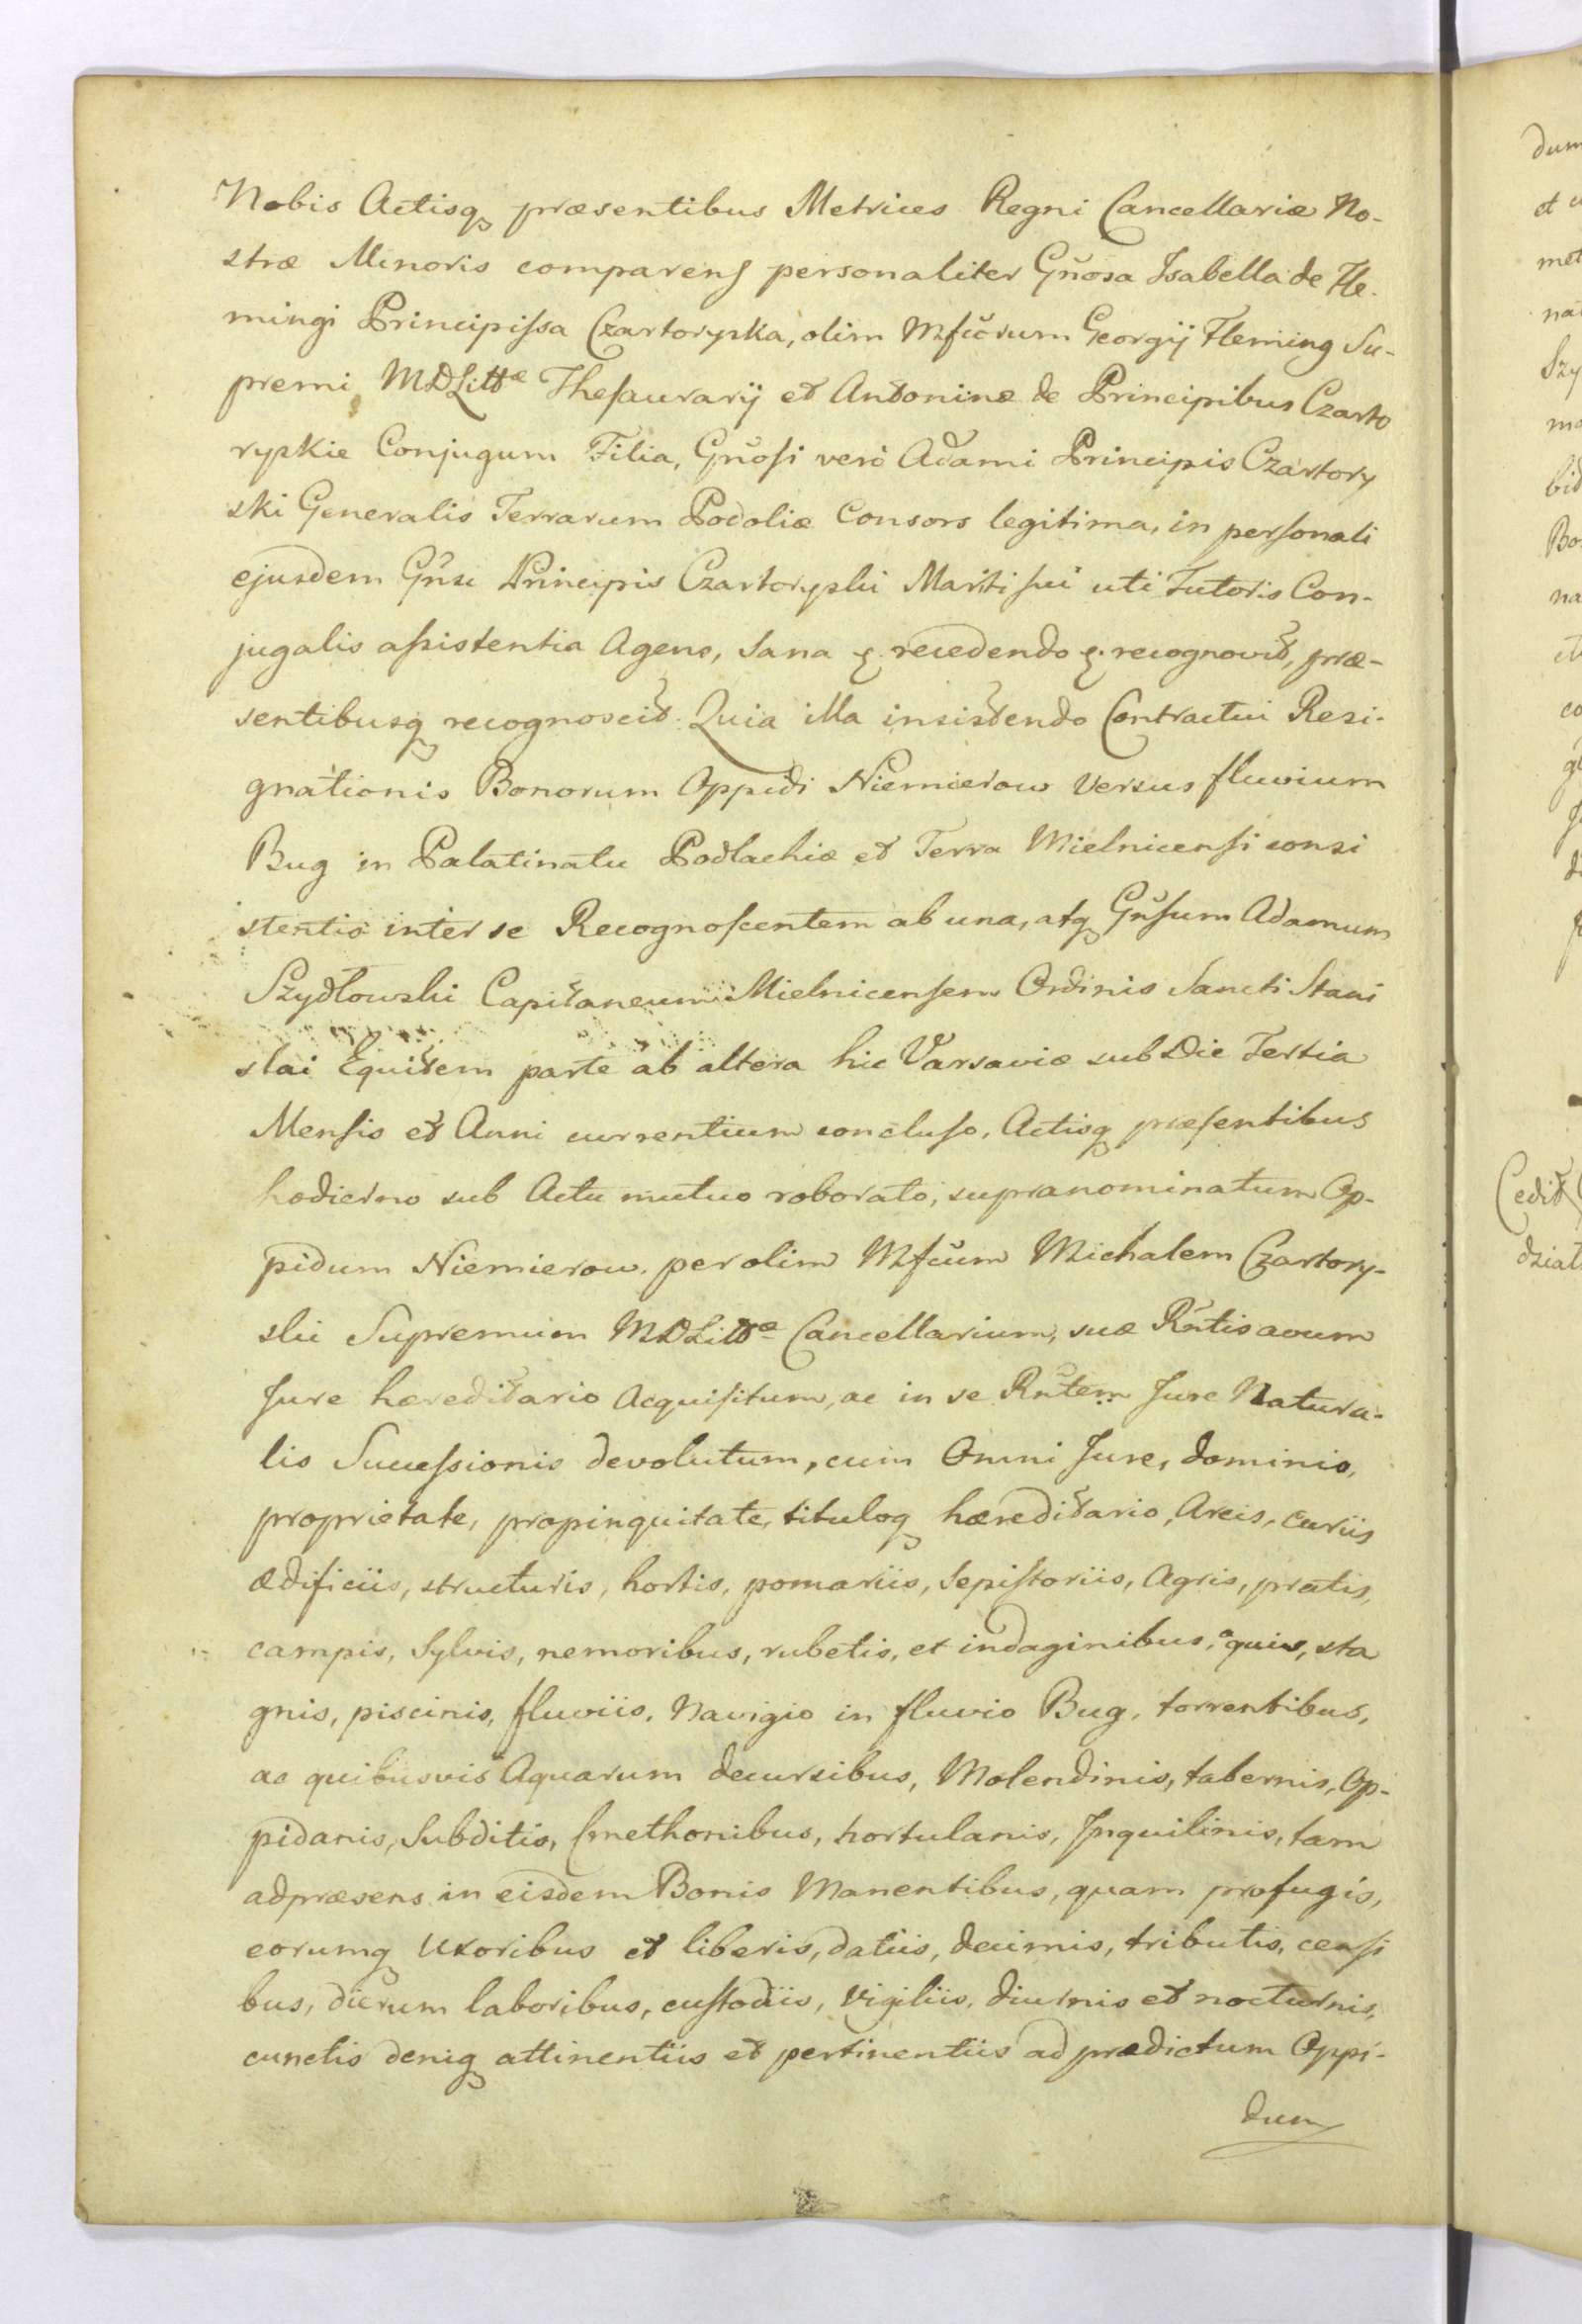 Nobis Actisq præsentibus Metrices Regni Cancellariæ No-
stræ Minoris comparens personaliter Gnosa Isabella de Fle-
mingi Principissa Czartoryska, olim Mfcorum Georgij Fleming Su-
premi MDLittæ Thesaurarij et Antoninæ de Principibus Czarto
ryskie Conjugum Filia, Gnosi verò Adami Principis Czartory
ski Generalis Terrarum Podoliæ Consors legitima, in personali
ejusdem Gnsi Principis Czartoryski Mariti sui uti Tutoris Con-
jugalis assistentia Agens, Sana &. recedendo &. recognovit, præ-
sentibusq recognoscit: Quia illa insistendo Contractui Resi-
gnationis Bonorum Oppidi Niemierow versus fluvium
Bug in Palatinatu Podlachiæ et Terra Mielnicensi consi
stentis inter se Recognoscentem ab una, atq Gnsum Adamum
Szydłowski Capitaneum Mielnicensem Ordinis Sancti Stani
slai Equitem parte ab altera hic Varsaviæ sub Die Tertia
Mensis et Anni currentium concluso, Actisq præsentibus
hodierno sub Actu mutuo roborato, supranominatum Op-
pidum Niemierow. per olim Mfcum Michalem Czartory-
ski Supremum MDLittæ Cancellarium, suæ Rntis avum
Jure hæreditario Acquisitum, ac in se Rntem Jure Natura-
lis Successionis devolutum, cum Omni Jure, dominio,
proprietate, propinquitate, tituloq hæreditario, Arcis, curiis
ædificiis, structuris, hortis, pomariis, Sepistoriis, Agris, pratis,
campis, Sylvis, nemoribus, rubetis, et indaginibus, aquis, sta
gnis, piscinis, fluviis, Navigio in fluvio Bug, torrentibus,
ac quibusvis Aquarum decursibus, Molendinis, tabernis, Op-
pidanis, Subditis, Cmethonibus, hortulanis, Inquilinis, tam
adpræsens in eisdem Bonis Manentibus, quam profugis,
eorumq Uxoribus et liberis, datiis, decimis, tributis, censi
bus, dierum laboribus, custodiis, Vigiliis, diurnis et nocturnis,
cunctis deniq attinentiis et pertinentiis ad prædictum Oppi-
dum